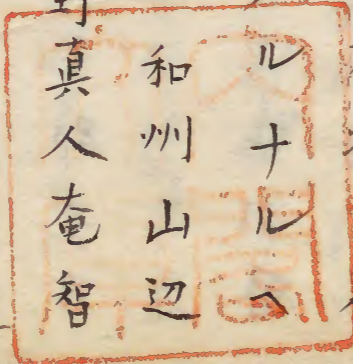 ルナルヘ
和州山辺
真人奄智